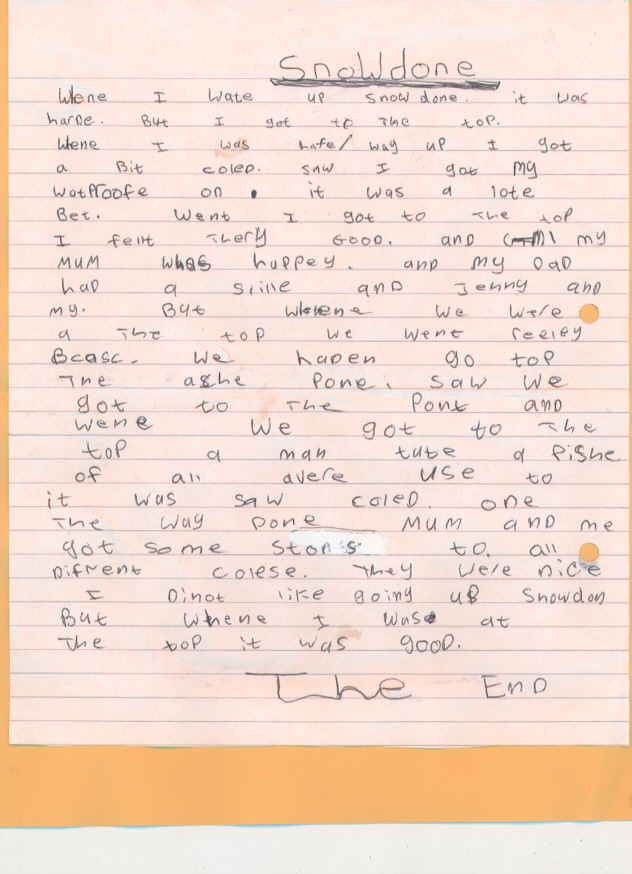 Snowdone
Wene I wate up snowdone. it was
harde. But I got to The top.
Wene I was hafe/ way up I got
a Bit coled. saw I got my
watproofe on. it was a lote
Bet. Went I got to The top
I felt Thery Good. and my
MUM whas happey. and my DaD
had a sline and Jenny and
my. But whene we were
a The top we went reeley
Bcasc. we haden go top
The ashe Pone. saw we
got to The Pont and
wene we got to The
top a man tube a Pishe
of all avere use to
it was saw coled. one
The way Done MUM and me
got some stons to. all
Difrent colese. They were nice
I Dinot like going up Snowdon
But whene I wase at
The top it was good.
The End